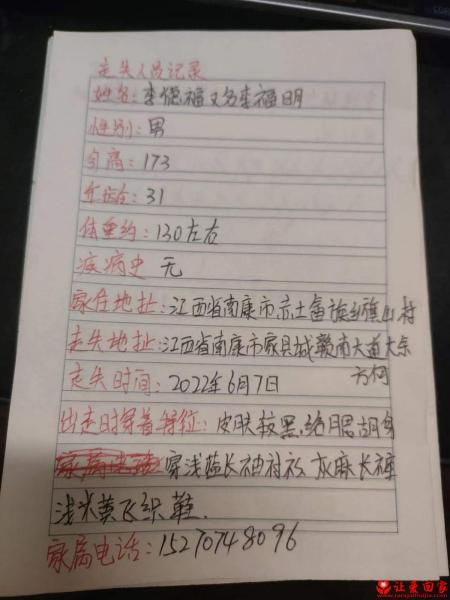 走失人员记录
姓名：李德福又名李福明
性别：男
身高：173
年龄：31
体重约：130左右
疾病史 无
家住地址：江西省南康市赤土畲族乡旗山村
走失地址：江西省南康市家具城赣南大道大余
方向
走失时间：2022年6月7日
出走时穿着特征：皮肤较黑，络腮胡身
穿浅蓝长袖衬衫 灰麻长裤
浅米黄飞织鞋.
家属电话：15270748096
让爱回家